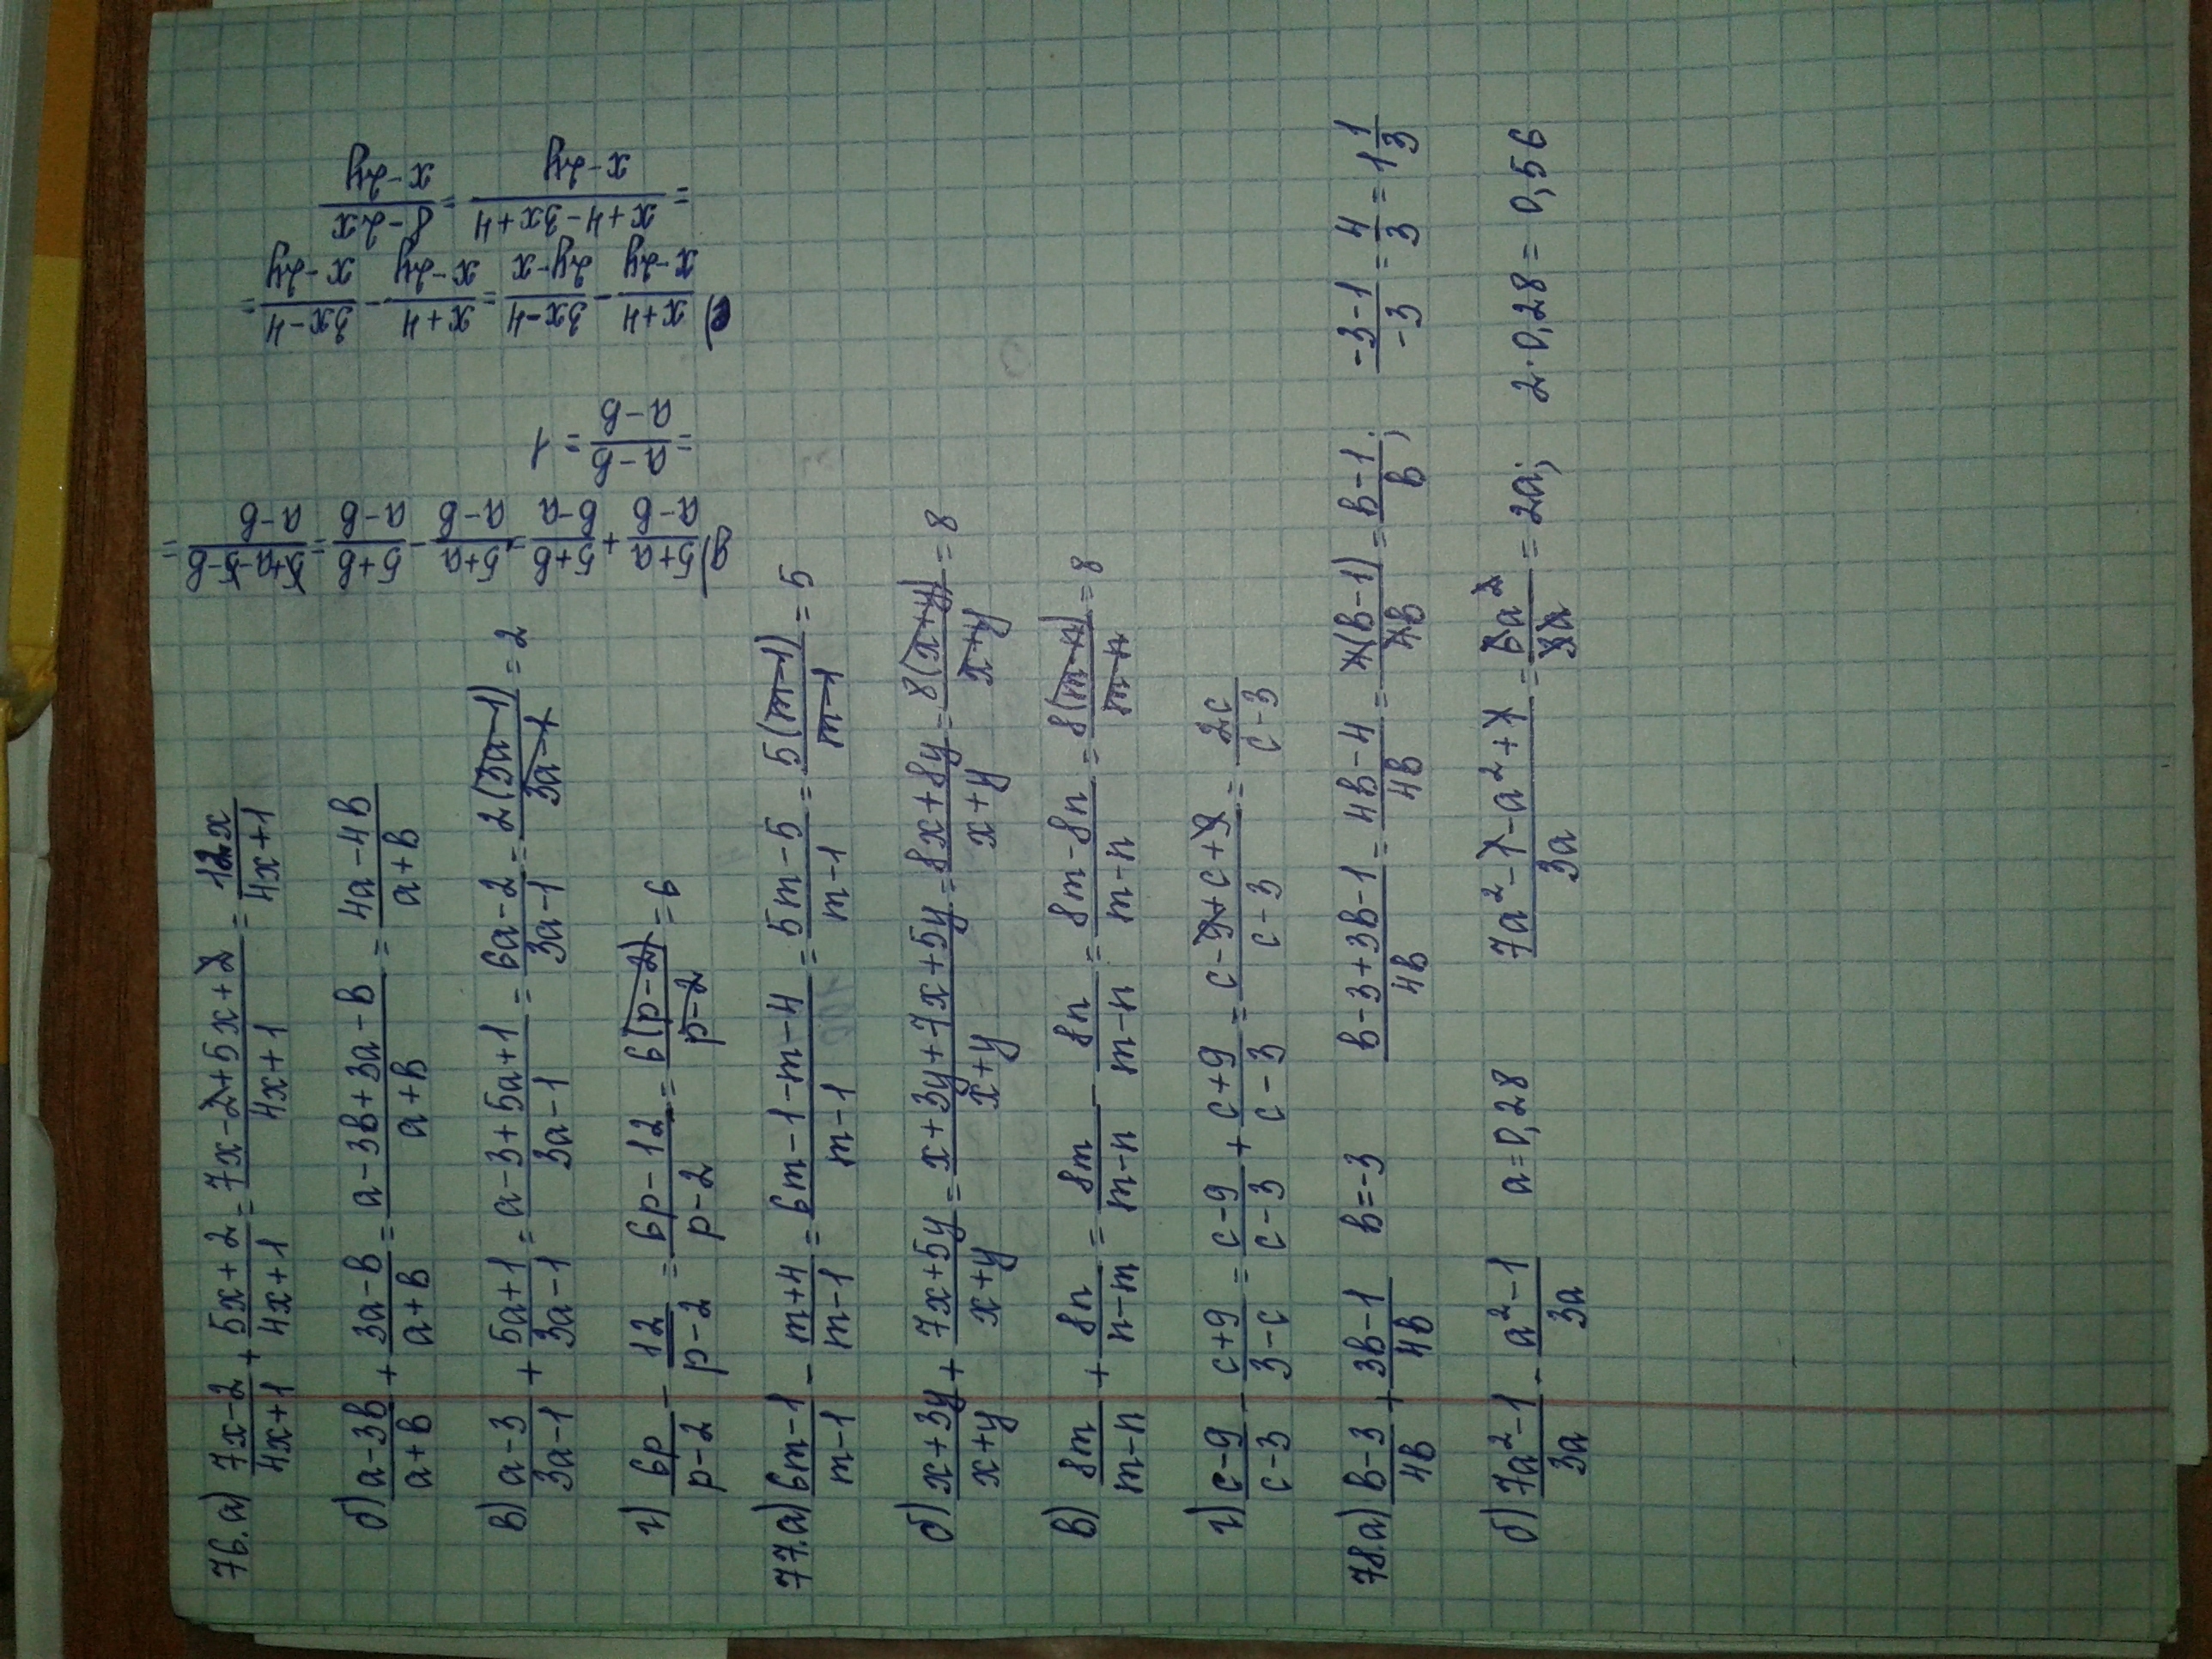 76.а) (7x-2)/(4x+1) + (5x+2)/(4x+1) = (7x-2+5x+2)/(4x+1) = 12x/(4x+1)
б) (a-3в)/(a+в) + (3a-в)/(a+в) = (a-3в+3a-в)/(a+в) = (4a-4в)/(a+в)
в) (a-3)/(3a-1) + (5a+1)/(3a-1) = (a-3+5a+1)/(3a-1) = (6a-2)/(3a-1) = 2(3a-1)/(3a-1) = 2
г) 6p/(p-2) - 12/(p-2) = (6p-12)/(p-2) = 6(p-2)/(p-2) = 6
77.а) (6m-1)/(m-1) - (m+4)/(m-1) = (6m-1-m-4)/(m-1) = (5m-5)/(m-1) = 5(m-1)/(m-1) = 5
б) (x+3y)/(x+y) + (7x+5y)/(x+y) = (x+3y+7x+5y)/(x+y) = (8x+8y)/(x+y) = 8(x+y)/(x+y) = 8
в) 8m/(m-n) + 8n/(n-m) = 8m/(m-n) - 8n/(m-n) = (8m-8n)/(m-n) = 8(m-n)/(m-n) = 8
г) (c-9)/(c-3) - (c+9)/(3-c) = (c-9)/(c-3) + (c+9)/(c-3) = (c-9+c+9)/(c-3) = 2c/(c-3)
78.а) (в-3)/4в + (3в-1)/4в в=-3 (в-3+3в-1)/4в = (4в-4)/4в = 4(в-1)/4в = (в-1)/в; (-3-1)/-3 = 4/3 = 1 1/3
б) (7a²-1)/3a - (a²-1)/3a a=0,28 (7a²-1-a²+1)/3a = 6a²/3a = 2a; 2·0,28 = 0,56
д) (5+a)/(a-в) + (5+в)/(в-a) = (5+a)/(a-в) - (5+в)/(a-в) = (5+a-5-в)/(a-в) =
= (a-в)/(a-в) = 1
е) (x+4)/(x-2y) - (3x-4)/(2y-x) = (x+4)/(x-2y) - (3x-4)/(x-2y) =
= (x+4-3x+4)/(x-2y) = (8-2x)/(x-2y)